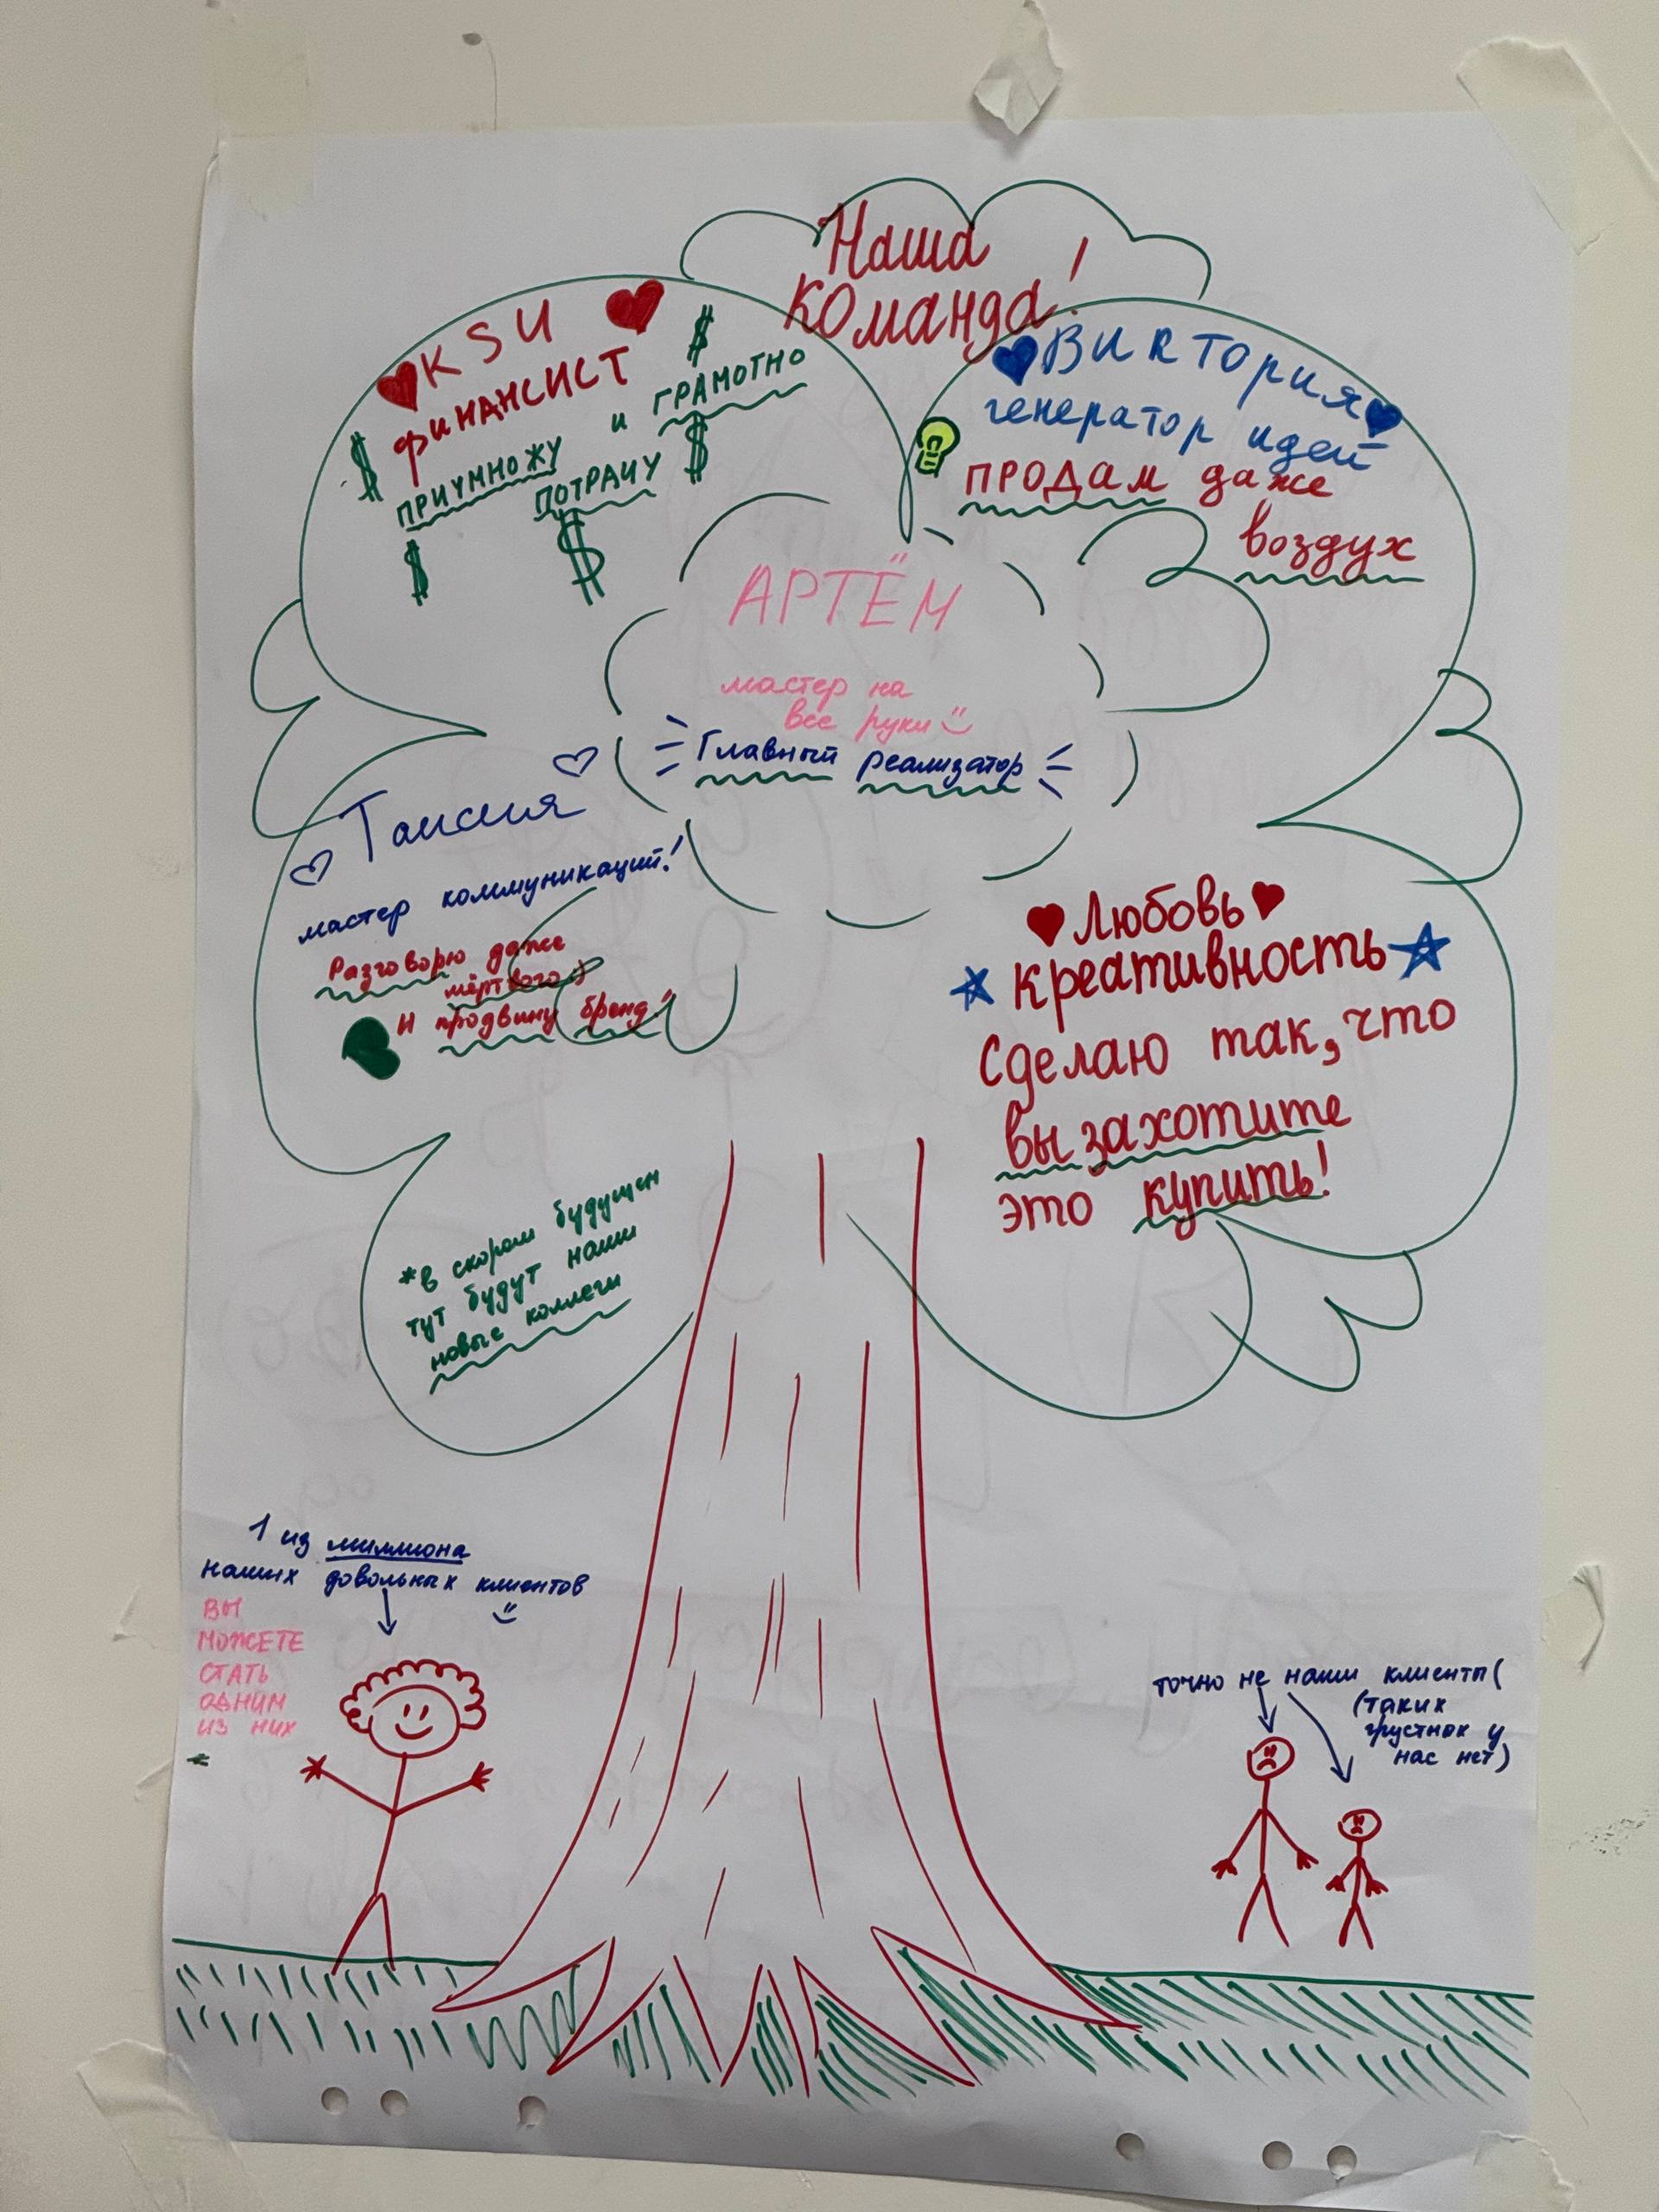 Наша
команда!
KSU
финансист
приумножу и грамотно
потрачу
Виктория
генератор идей
продам даже
воздух
АРТЁМ
мастер на
все руки
Главный реализатор
Таисия
мастер коммуникаций!
Разговорю даже
мёртвого :)
И продвину бренд!
Любовь
креативность
Сделаю так, что
вы захотите
это купить!
*в скором будущем
тут будут наши
новые коллеги
1 из миллиона
наших довольных клиентов
ВЫ
МОЖЕТЕ
СТАТЬ
ОДНИМ
ИЗ НИХ
точно не наши клиенты(
(таких
грустных у
нас нет)